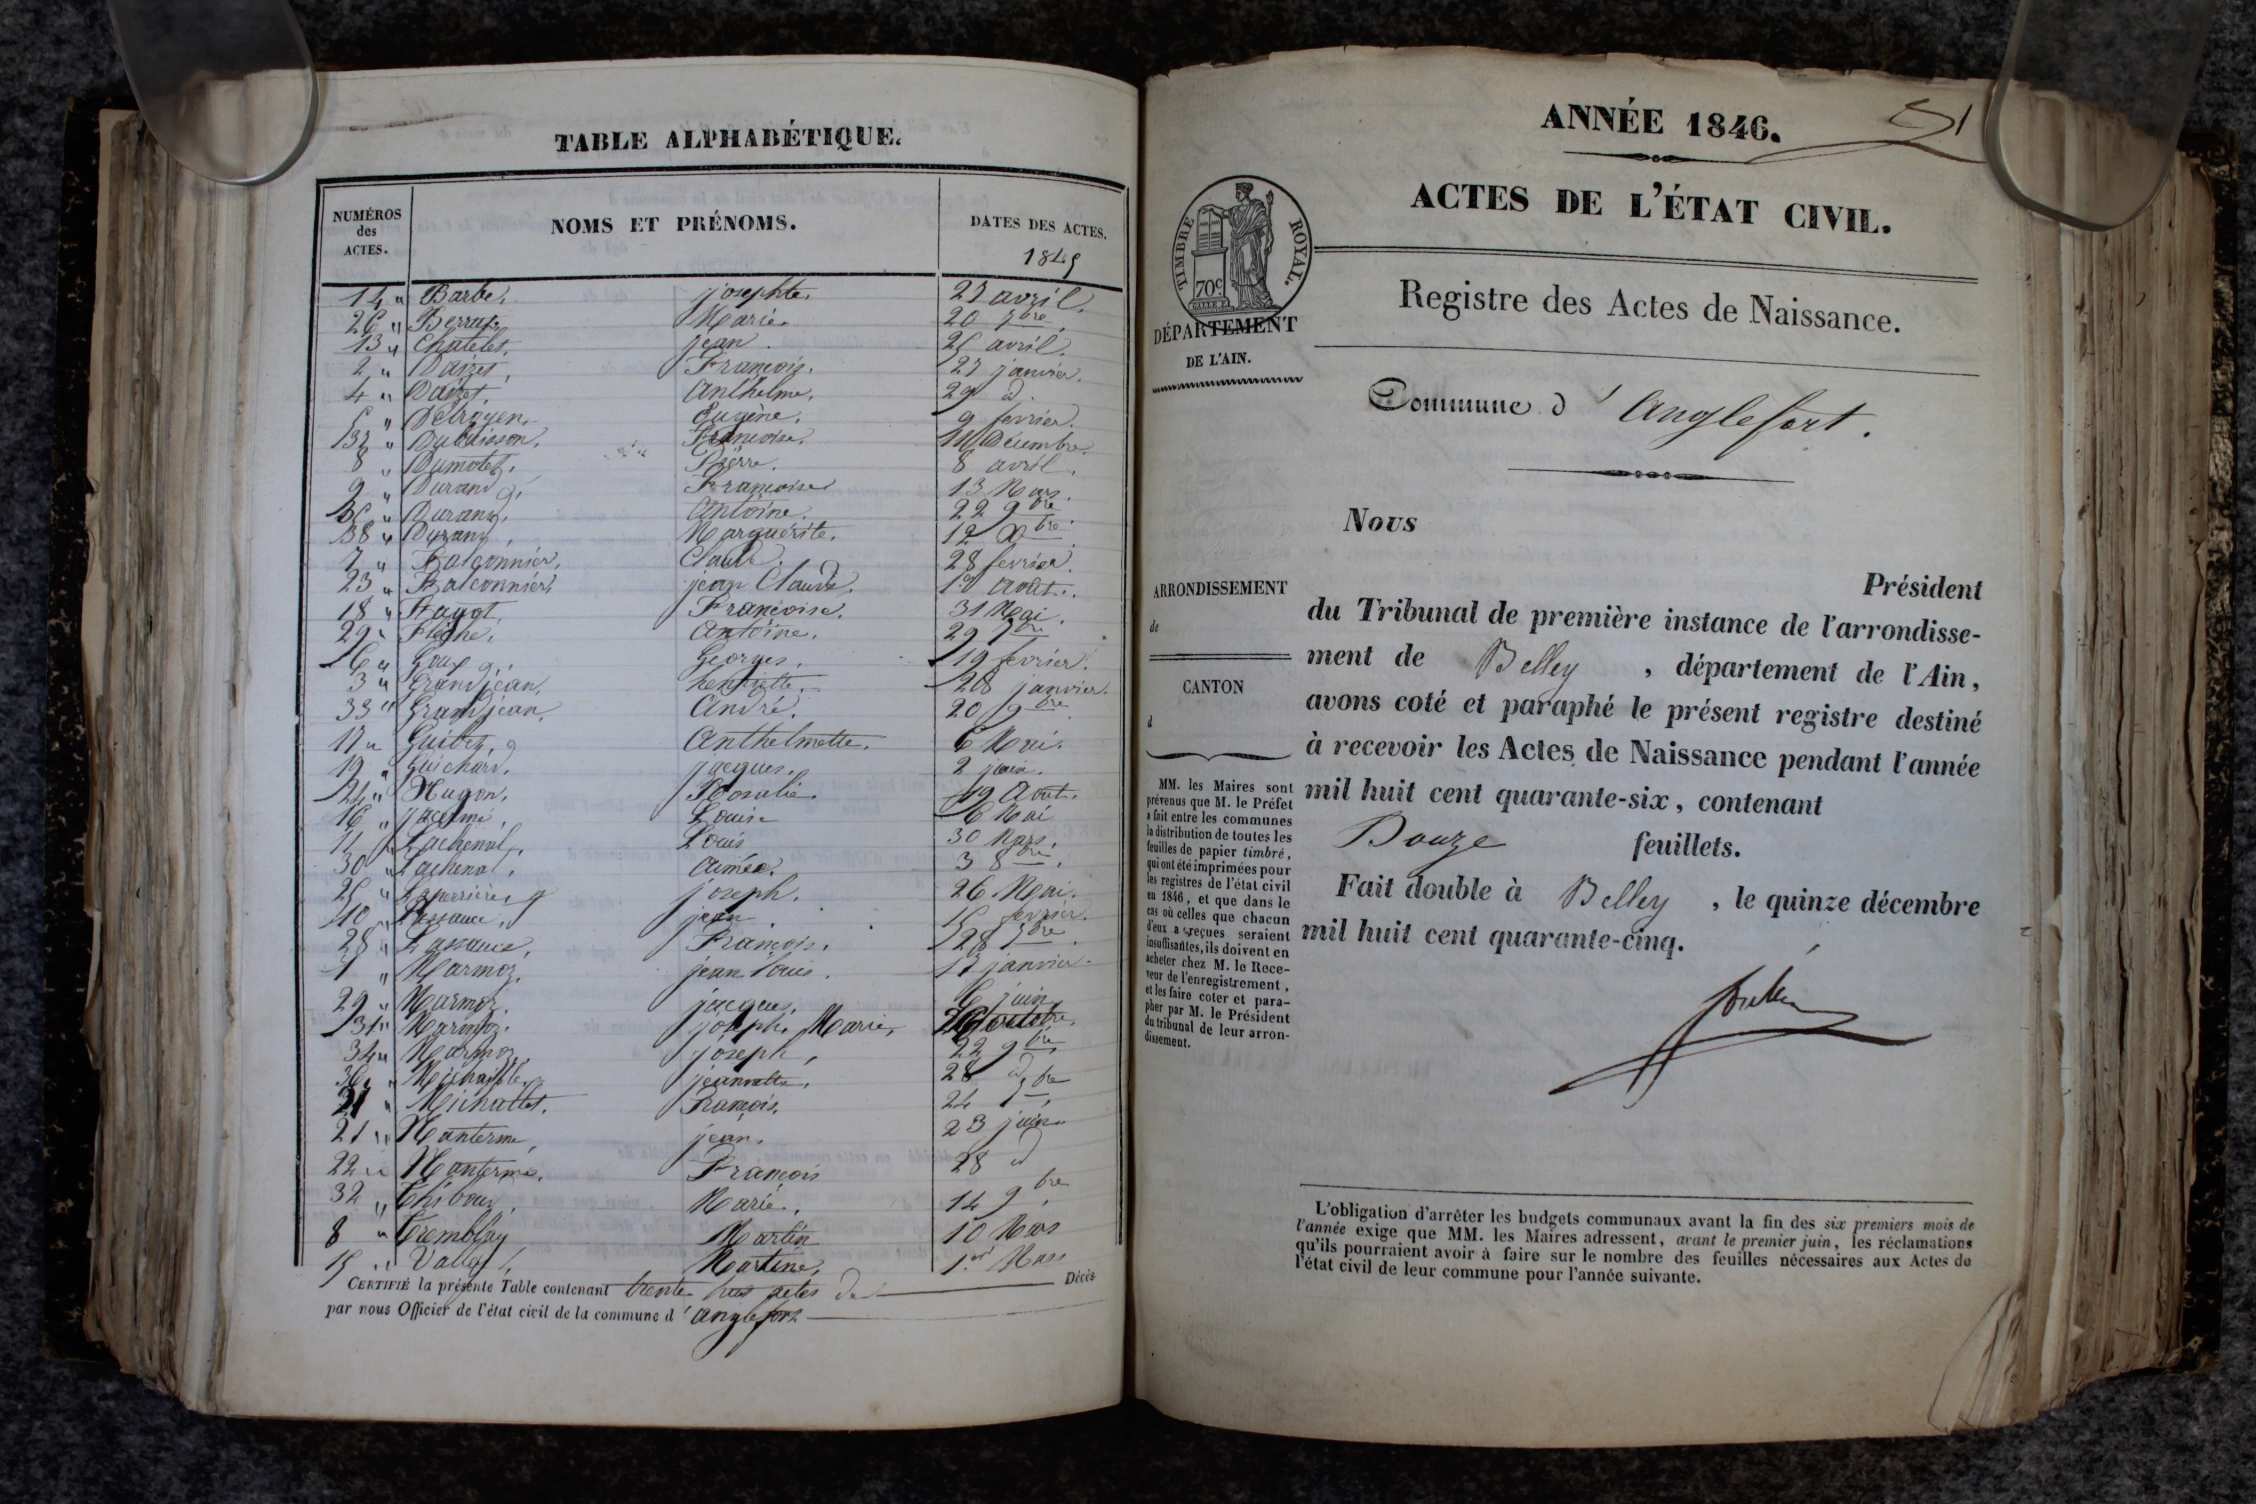 TABLE ALPHABÉTIQUE.
NUMÉROS
des
ACTES.
NOMS ET PRÉNOMS.
DATES DES ACTES.
1845
14 " Barbe, josephte. 27 avril.
26 " Marie. 20 7bre.
13 " Chatelet. jean. 25 avril.
2 " Daizet, François. 27 janvier.
4 " Daizet, Anthelme. 29 d.
" Détroyen. Eugène. 9 fevrier.
" Dubuisson. Françoise. Décembre.
8 " Dumollet. Pierre. 8 avril.
9 " Durand Françoise 13 Mars.
" Durand. Antoine. 22 9bre.
38 " Durand, Marguerite. 12 Xbre.
7 " Falconnier, Claude. 28 fevrier.
23 " Falconnier, jean Claude. 1er aout.
18 " Fagot, Françoise. 31 Mai.
29 " Antoine. 29 7bre
6 " Goux Georges. 19 fevrier.
3 " Grandjean, henriette. 28 janvier.
33 " Grandjean, André. 20 9bre
17 " Guibet, Anthelmette. 6 Mai.
19 " Guichard. jacques. 2 juin.
24 " Hugon, Rosalie. 19 Aout.
16 " Louise 6 Mai
11 " Lachenal, Louis 30 Mars.
30 " Lachenal, Aimée. 3 8bre.
25 " joseph. 26 Mai.
10 " jean. 15 fevrier.
28 " François. 28 7bre
1 " Marmoz. jean Louis. 17 janvier.
29 " Marmoz. jacques. 6 juin
31 " Marmoz. joseph Marie, octobre.
34 " Marmoz. joseph, 22 9bre
36 " jeannette. 28 d
" Michallet. François. 24 7bre
21 " Manterme, jean. 23 juin
22 " Manterme. François 28 d
32 " Marie. 14 9bre
8 " Tremblay Martin 10 Mars
15 " Vallet, Martine, 1er Mars
CERTIFIÉ la présente Table contenant trente huit actes de Décès
par nous Officier de l'état civil de la commune d' anglefort
51
ANNÉE 1846.
ACTES DE L'ÉTAT CIVIL.
TIMBRE ROYAL.
70c
DÉPARTEMENT
DE L'AIN.
Registre des Actes de Naissance.
Commune d' Anglefort.
Nous
Président
ARRONDISSEMENT
de
CANTON
d
du Tribunal de première instance de l'arrondisse-
ment de Belley, département de l'Ain,
avons coté et paraphé le présent registre destiné
à recevoir les Actes de Naissance pendant l'année
mil huit cent quarante-six, contenant
Douze feuillets.
Fait double à Belley, le quinze décembre
mil huit cent quarante-cinq.
MM. les Maires sont
prévenus que M. le Préfet
a fait entre les communes
la distribution de toutes les
feuilles de papier timbré,
qui ont été imprimées pour
les registres de l'état civil
en 1846, et que dans le
cas où celles que chacun
d'eux a reçues seraient
insuffisantes, ils doivent en
acheter chez M. le Rece-
veur de l'enregistrement,
et les faire coter et para-
pher par M. le Président
du tribunal de leur arron-
dissement.
L'obligation d'arrêter les budgets communaux avant la fin des six premiers mois de
l'année exige que MM. les Maires adressent, avant le premier juin, les réclamations
qu'ils pourraient avoir à faire sur le nombre des feuilles nécessaires aux Actes de
l'état civil de leur commune pour l'année suivante.